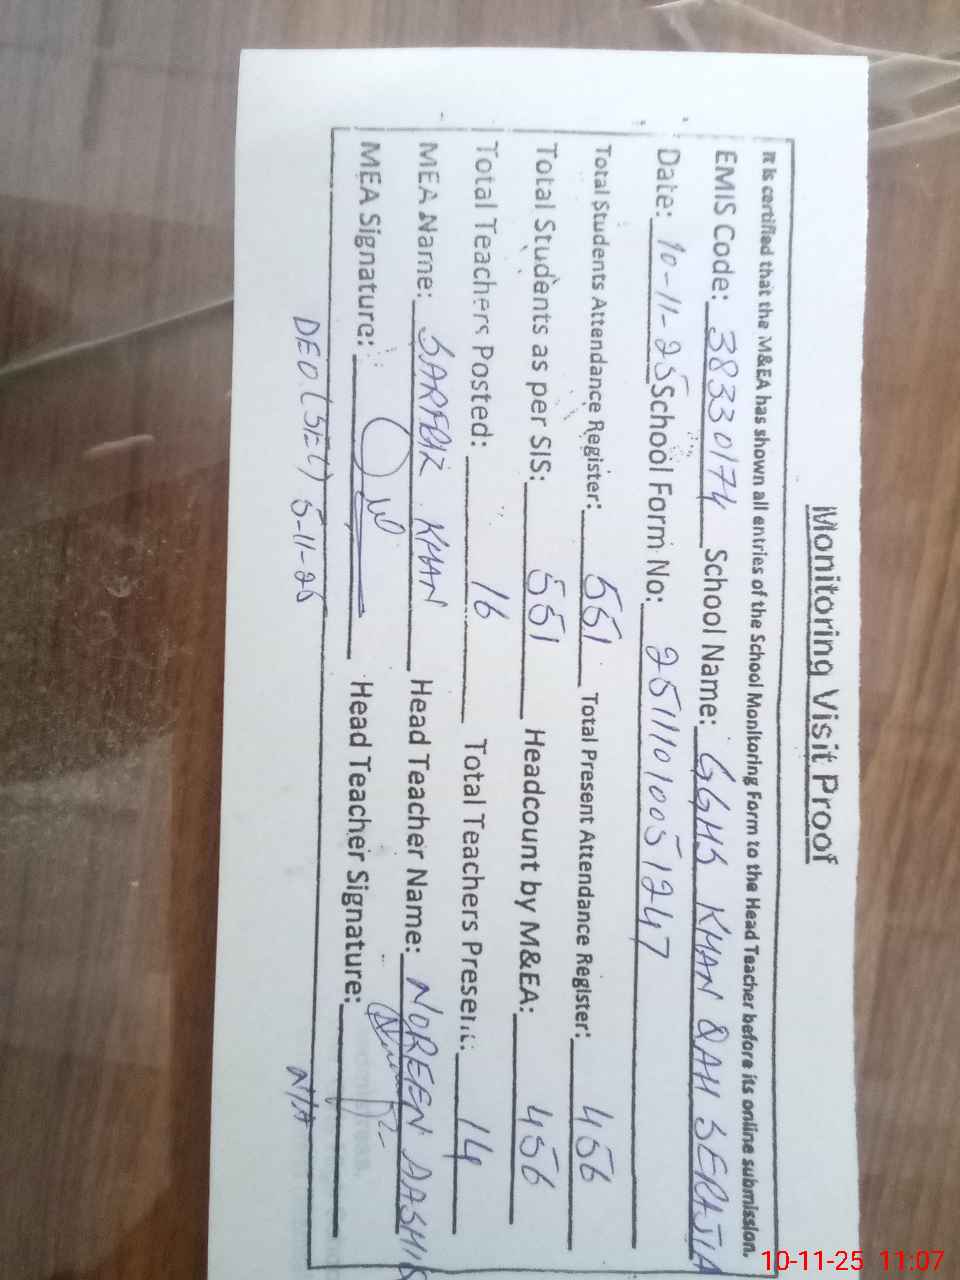 Monitoring Visit Proof
It is certified that the M&EA has shown all entries of the School Monitoring Form to the Head Teacher before its online submission.
EMIS Code: 38330174 School Name: GGHS KHAN QAH SERAJIA
Date: 10-11-25 School Form No: 25111010051247
Total Students Attendance Register: 551 Total Present Attendance Register: 456
Total Students as per SIS: 551 Headcount by M&EA: 456
Total Teachers Posted: 16 Total Teachers Present: 14
MEA Name: SARFRIZ KHAN Head Teacher Name: NOREEN AASHIQ
MEA Signature: Head Teacher Signature:
DEO (SE) 5-11-25 N/A
10-11-25 11:07